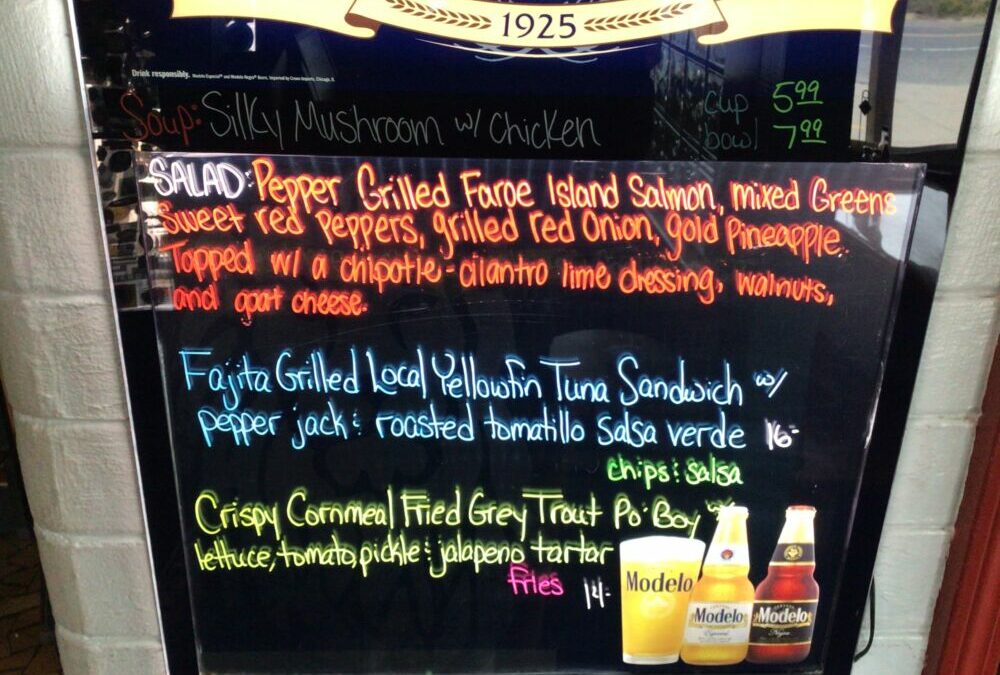 1925
Drink responsibly. Modelo Especial® and Modelo Negra® Beers. Imported by Crown Imports, Chicago, IL
Soup: Silky Mushroom w/ Chicken cup 5.99
bowl 7.99
SALAD: Pepper Grilled Faroe Island Salmon, mixed Greens
Sweet red Peppers, grilled red Onion, gold Pineapple.
Topped w/ a chipotle-cilantro lime dressing, walnuts,
and goat cheese.
Fajita Grilled Local Yellowfin Tuna Sandwich w/
pepper jack & roasted tomatillo salsa verde 16-
chips & salsa
Crispy Cornmeal Fried Grey Trout Po' Boy w/
lettuce, tomato, pickle & jalapeno tartar
fries 14-
Modelo
Modelo
Especial
Modelo
Negra